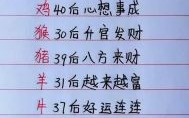 鸡40后心想事成
猴30后升官发财
猪39后八方来财
羊31后越来越富
牛37后好运连连